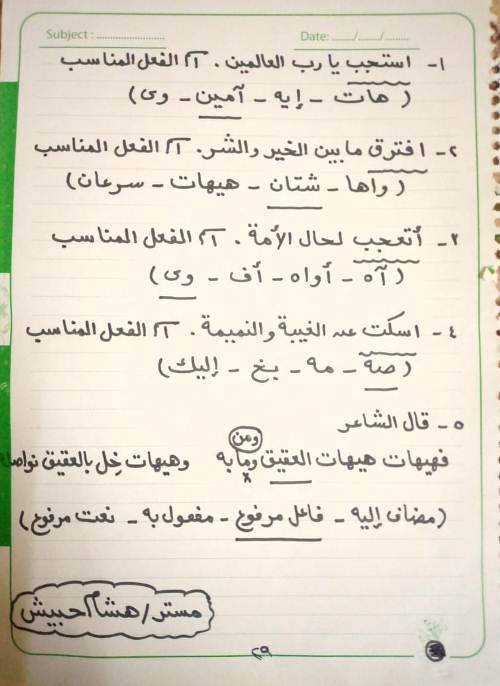 Subject : ........................
Date: ....../....../........
١- استجب يا رب العالمين . اسم الفعل المناسب
( هات - إيه - آمين - وى )
٢- افترق ما بين الخير والشر. اسم الفعل المناسب
( واها - شتان - هيهات - سرعان )
٣- أتعجب لحال الأمة . اسم الفعل المناسب
( آه - أواه - أف - وى )
٤- اسكت عن الغيبة والنميمة . اسم الفعل المناسب
( صه - مه - بخ - إليك )
٥- قال الشاعر
ومن
فهيهات هيهات العقيق وما به وهيهات خِل بالعقيق نواصله
( مضاف إليه - فاعل مرفوع - مفعول به - نعت مرفوع )
مستر / هشام حبيش
٢٩